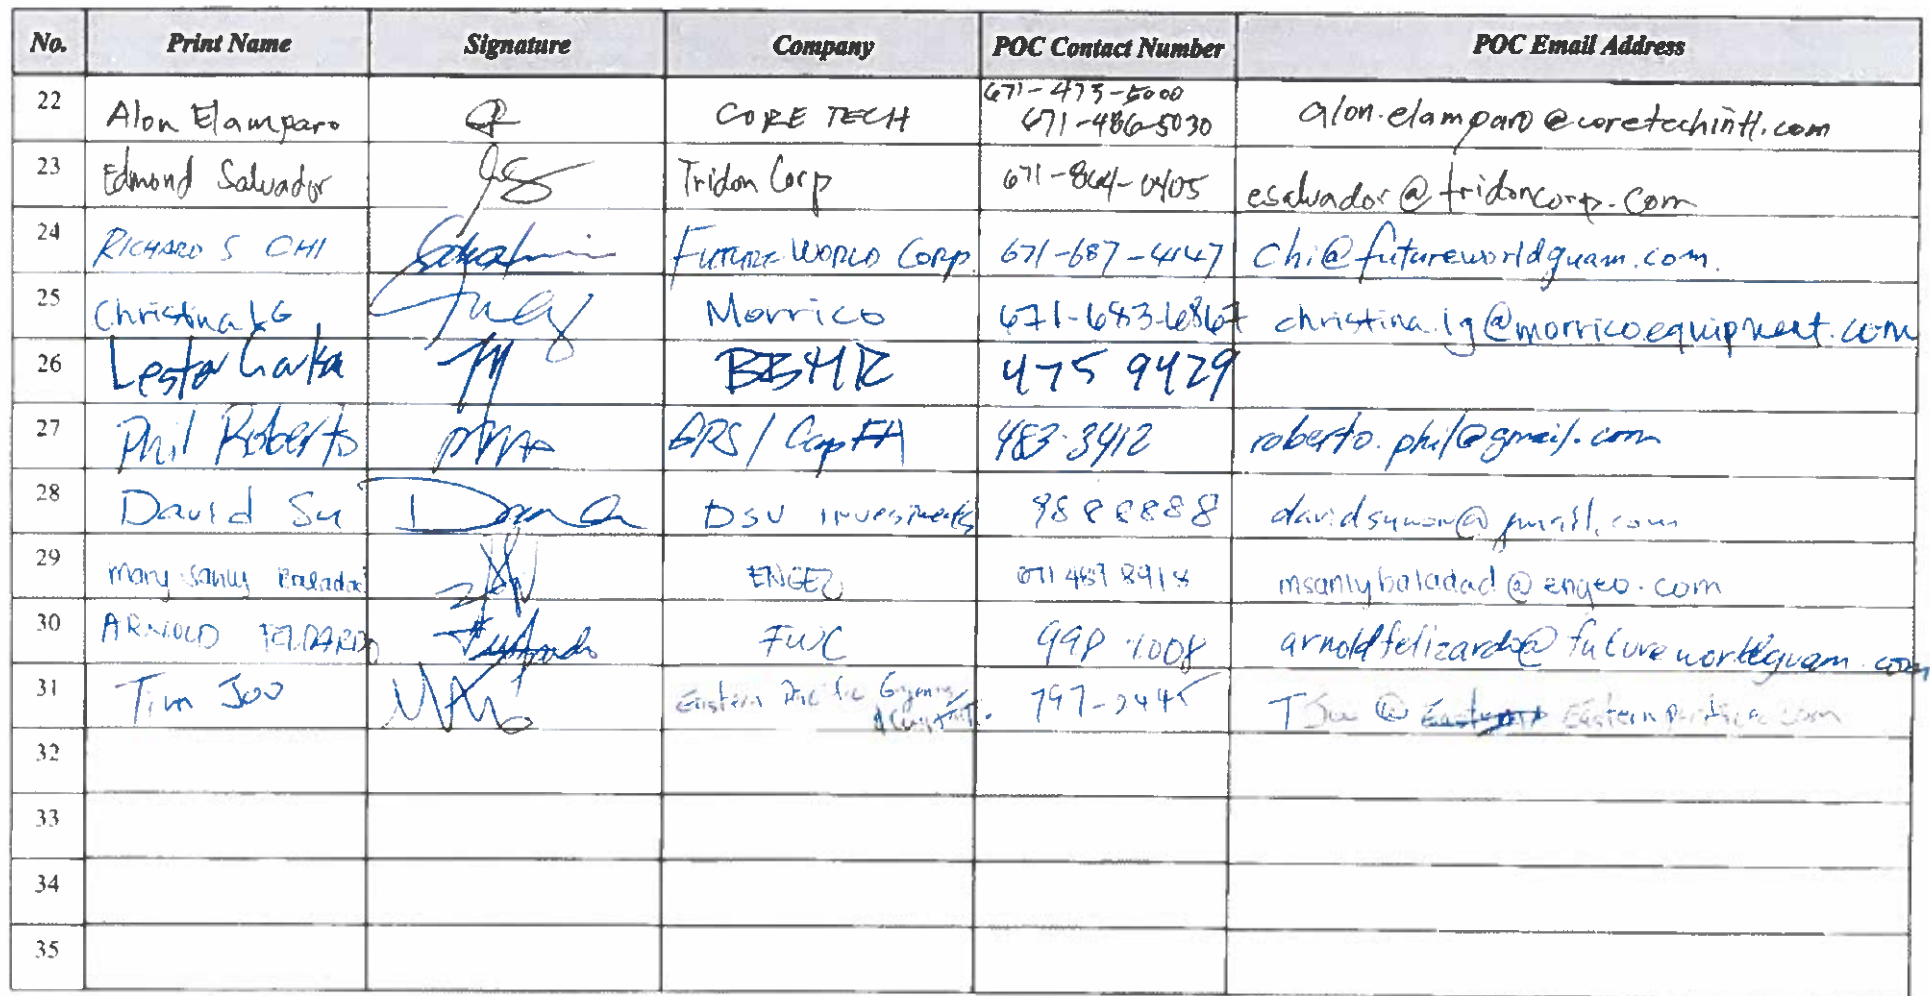 No. Print Name Signature Company POC Contact Number POC Email Address
22 Alon Elamparo CORE TECH 671-473-5000
671-486-5030 alon.elamparo@coretechintl.com
23 Edmond Salvador Tridon Corp 671-864-0405 esalvador@tridoncorp.com
24 RICHARD S CHI FUTURE WORLD CORP. 671-687-4147 chi@futureworldguam.com.
25 Christina IG Morrico 671-683-6867 christina.ig@morricoequipment.com
26 Lester BBMR 475 9429
27 Phil Roberto 483-3412 roberto.phil@gmail.com
28 David Su Investments 9888888
29 Mary Sanly Baladad ENGEO 671 487 8918 msanlybaladad@engeo.com
30 ARNOLD FELIZARDO FWC 998-1008 arnoldfelizardo@futureworldguam.com
31 Tim Joo Eastern Pacific
32
33
34
35